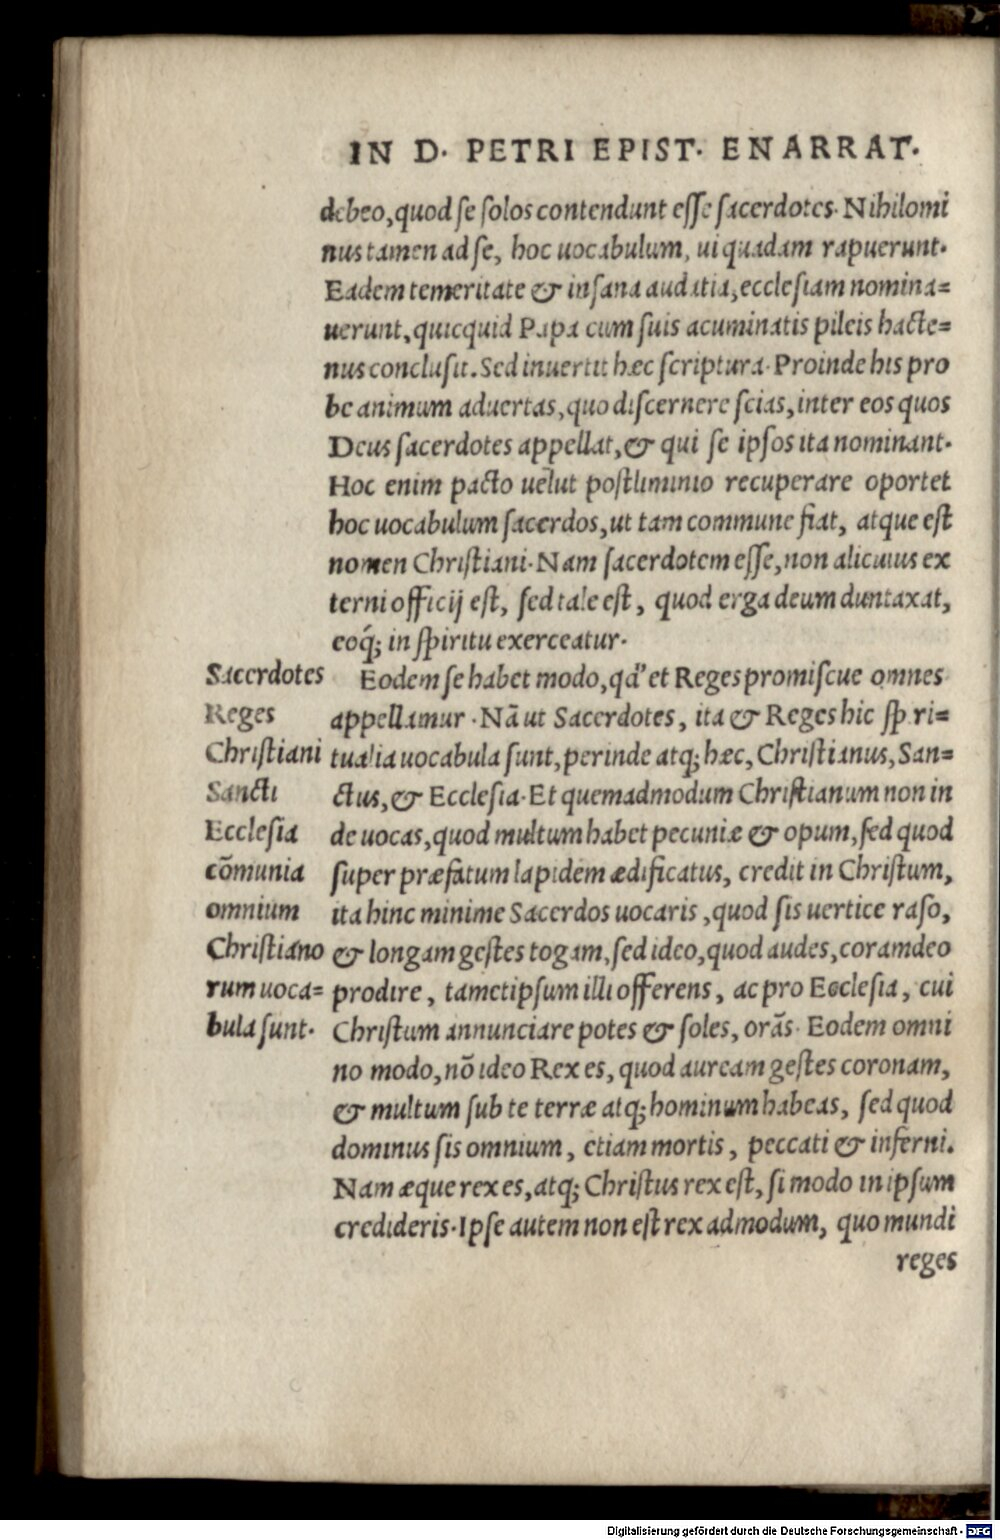 IN D. PETRI EPIST. ENARRAT.
debeo, quod se solos contendunt esse sacerdotes. Nihilomi
nus tamen ad se, hoc uocabulum, ui quadam rapuerunt.
Eadem temeritate & insana audatia, ecclesiam nomina=
uerunt, quicquid Papa cum suis acuminatis pileis hacte=
nus conclusit. Sed inuertit hæc scriptura. Proinde his pro
be animum aduertas, quo discernere scias, inter eos quos
Deus sacerdotes appellat, & qui se ipsos ita nominant.
Hoc enim pacto uelut postliminio recuperare oportet
hoc uocabulum sacerdos, ut tam commune fiat, atque est
nomen Christiani. Nam sacerdotem esse, non alicuius ex
terni officij est, sed tale est, quod erga deum duntaxat,
eoq́; in spiritu exerceatur.
Sacerdotes
Reges
Christiani
Sancti
Ecclesia
cōmunia
omnium
Christiano
rum uoca=
bula sunt.
Eodem se habet modo, qd' et Reges promiscue omnes
appellamur. Nā ut Sacerdotes, ita & Reges hic spiri=
tualia uocabula sunt, perinde atq; hæc, Christianus, San=
ctus, & Ecclesia. Et quemadmodum Christianum non in
de uocas, quod multum habet pecuniæ & opum, sed quod
super præfatum lapidem ædificatus, credit in Christum,
ita hinc minime Sacerdos uocaris, quod sis uertice raso,
& longam gestes togam, sed ideo, quod audes, coram deo
prodire, tametipsum illi offerens, ac pro Ecclesia, cui
Christum annunciare potes & soles, orās. Eodem omni
no modo, nō ideo Rex es, quod auream gestes coronam,
& multum sub te terræ atq; hominum habeas, sed quod
dominus sis omnium, etiam mortis, peccati & inferni.
Nam æque rex es, atq; Christus rex est, si modo in ipsum
credideris. Ipse autem non est rex admodum, quo mundi
reges
Digitalisierung gefördert durch die Deutsche Forschungsgemeinschaft - DFG